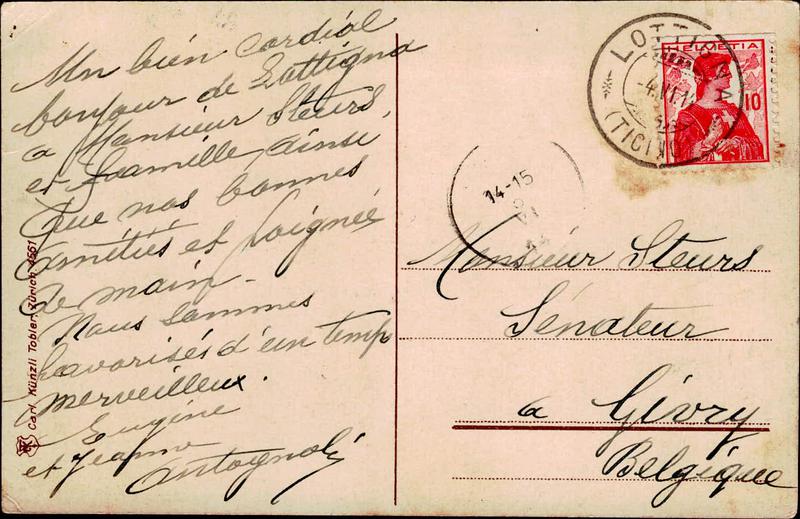 Un bien cordial
bonjour de Lottigna
a Monsieur Steurs
et Famille ainsi
que nos bonnes
amitiés et poignée
de main -
Nous sommes
favorisés d'un temps
merveilleux.
Eugène
et Jeanne
Antognoli
Carl Künzli Tobler, Zürich 4551
LOTTIGNA
(TICINO)
HELVETIA
10
14-15
Monsieur Steurs
Sénateur
a Givry
Belgique